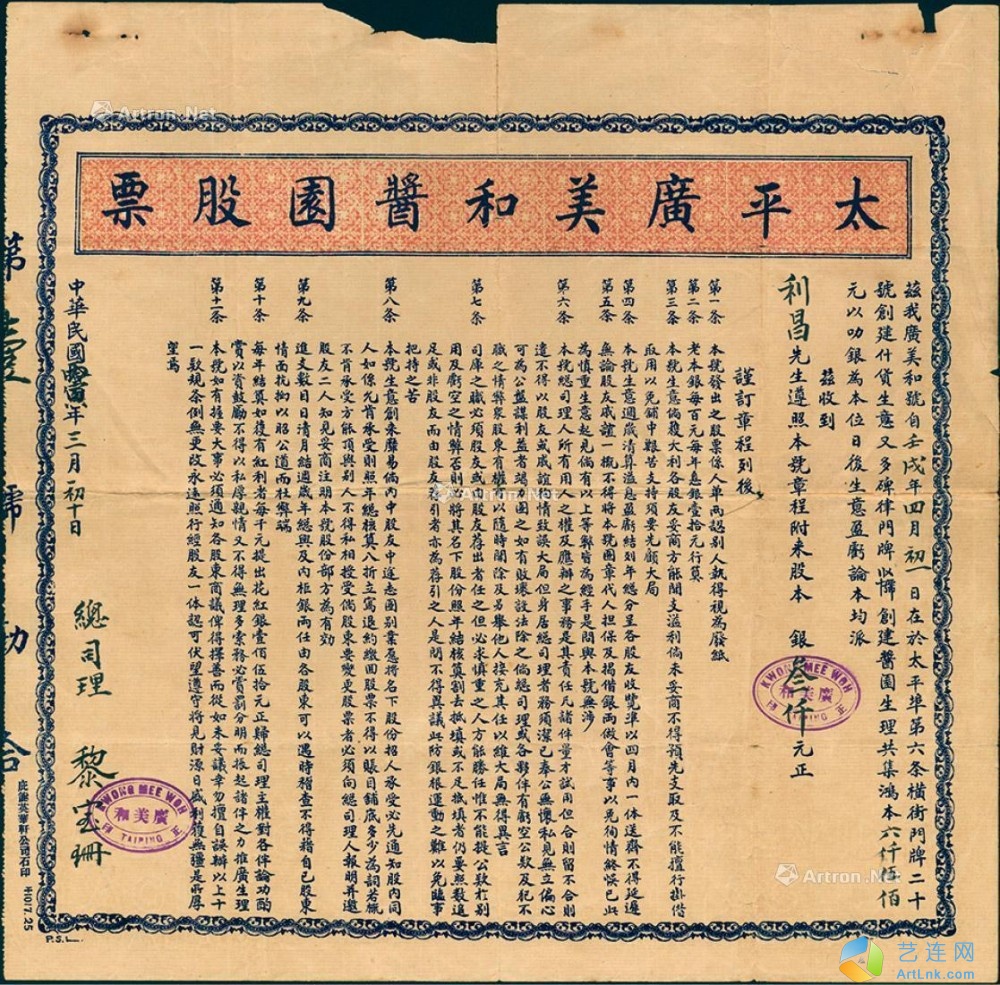 太平廣美和醬園股票
茲我廣美和號自壬戌年四月初一日在於太平埠第六条橫街門牌二十
號創建什貨生意又多碑律門牌以惿創建醬園生理共集鴻本六仟伍佰
元以叻銀為本位日後生意盈虧論本均派
茲收到
利昌先生遵照本號章程附來股本 銀叄仟元正
謹訂章程列後
第一条 本號發出之股票係人單両認別人執得視為廢紙
第二条 老本銀每百元每年息銀壹拾元行算
第三条 本號生意倘獲大利各股友妥商方能開支溢利倘未妥商不得預先支取及不能擅行掛借
取用以免鋪中艱苦支持須要先顧大局
第四条 本號生意週歲清算溢息盈虧結列年總分呈各股友收覽準以四月內一体送齊不得延遲
第五条 無論股友戚誼一概不得將本號圖章代人担保及揭借銀両做會等事以免徇情終悞已此
為慎重生意起見倘有以上等弊皆為經手是問與本號無涉
第六条 本號總司理人所有用人之權及應辦之事務是其責任凡諸伴量才試用但合則留不合則
遣不得以股友或戚誼徇情致誤大局但身居總司理者務須潔己奉公無懷私見無立偏心
可為公盤謀利益者竭力圖之如有敗壞設法除之倘總司理或各夥伴有虧空公欵及犯不
職之情弊眾股東有權可以隨時開除及另舉他人接充其任以維大局無得異言
第七条 司庫之職必須股友或由股友荐出者任之但必求慎重之人方能勝任惟不能揆公欵於別
用及虧空之情弊否則將其名下股份照年結核算割去抵填或不足抵填者仍要照數追
足或非股友而由股友荐引者亦為荐引之人是問不得異議此防銀根運動之難以免臨事
把持之苦
第八条 本號生意創來靡易倘內中股友中途志圖別業愿將名下股份招人承受必先通知股內同
人如係先肯承受則照年總核算八折立寫退約繳回股票不得以賬目鋪底多少為詞若概
不肯承受方能頂與別人不得私相授受倘股東要變更股票者必須向總司理人報明并邀
股友二人知見妥商注明本號股份部方為有効
第九条 進支數目日清月結週歲年總與及內柜銀両任由各股東可以遇時稽查不得藉自己股東
情面抗抝以昭公道而杜弊端
第十条 每年結算如獲有紅利者每千元提出花紅銀壹佰伍拾元正歸總司理主權對各伴論功酌
賞以資鼓勵不得以私厚親情又不得無理多索務必賞罰分明而振起諸伴之力推廣生理
第十一条 本號如有種要大事必須通知各股東商議俾得擇善而從如未妥議幸勿擅自誤辦以上十
一欵規条倒無更改永遠照行經股友一体認可伏望遵守將見財源日盛利獲無疆是所厚
望焉
中華民國 年三月初十日
總司理 黎
第壹號
合
KWONG MEE WOH
廣美和
TAIPING
KWONG MEE WOH
廣美和
TAIPING
庇能英華軒公司石印
P.S.L.
Artron.Net
Artron.Net
Artron.Net
Artron.Net
艺连网
ArtLnk.com